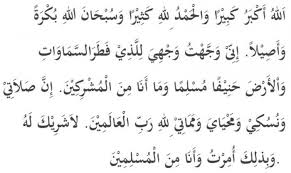 اَللهُ أَكْبَرُ كَبِيْرًا وَالْحَمْدُ لِلهِ كَثِيْرًا وَسُبْحَانَ اللهِ بُكْرَةً
وَأَصِيْلاً. إِنِّيْ وَجَّهْتُ وَجْهِيَ لِلَّذِيْ فَطَرَ السَّمَاوَاتِ
وَالْأَرْضَ حَنِيْفًا مُسْلِمًا وَمَا أَنَا مِنَ الْمُشْرِكِيْنَ. إِنَّ صَلَاتِيْ
وَنُسُكِيْ وَمَحْيَايَ وَمَمَاتِيْ لِلهِ رَبِّ الْعَالَمِيْنَ. لاَشَرِيْكَ لَهُ
وَبِذلِكَ أُمِرْتُ وَأَنَا مِنَ الْمُسْلِمِيْنَ.